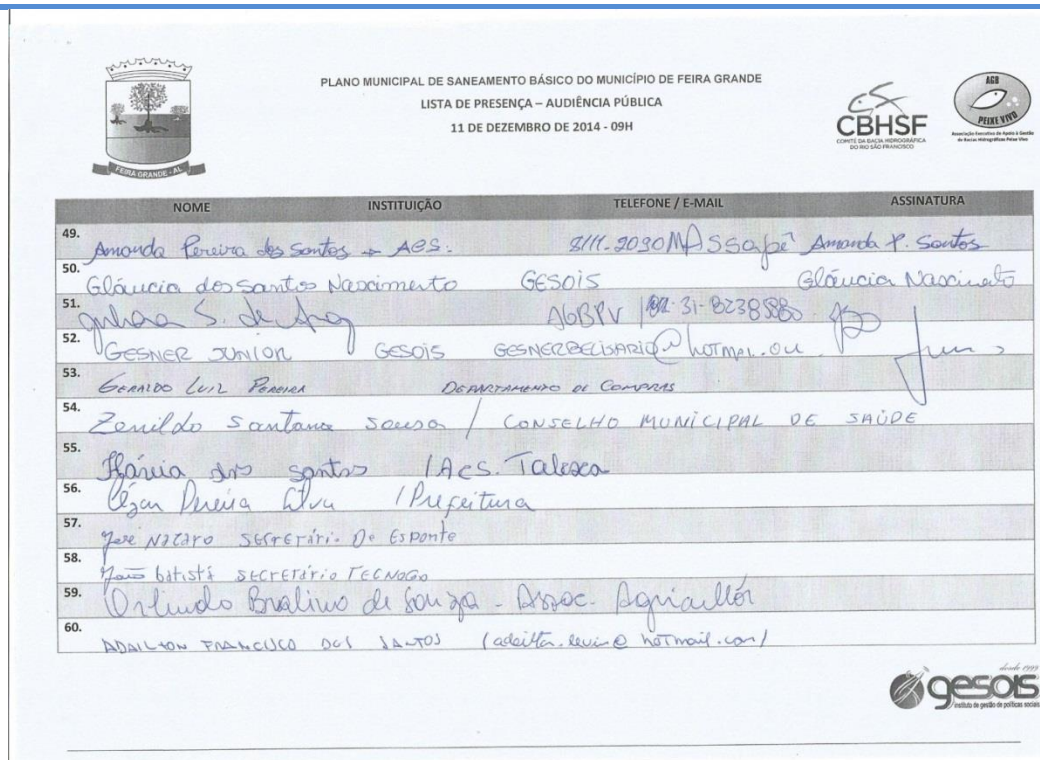 PLANO MUNICIPAL DE SANEAMENTO BÁSICO DO MUNICÍPIO DE FEIRA GRANDE
LISTA DE PRESENÇA – AUDIÊNCIA PÚBLICA
11 DE DEZEMBRO DE 2014 - 09H
FEIRA GRANDE - AL
CBHSF
COMITÊ DA BACIA HIDROGRÁFICA
DO RIO SÃO FRANCISCO
AGB
PEIXE VIVO
Associação Executiva de Apoio à Gestão
de Bacias Hidrográficas Peixe Vivo
NOME INSTITUIÇÃO TELEFONE / E-MAIL ASSINATURA
49. Amanda Pereira dos Santos ACS. 8111-2030 MASSAPÊ Amanda P. Santos
50. Gláucia dos Santos Nascimento GESOIS Gláucia Nascimento
51. S. de AGBPV
52. GESNER JUNIOR GESOIS
53. GERALDO LUIZ PEREIRA DEPARTAMENTO DE COMPRAS
54. Zenildo Santana Sousa / CONSELHO MUNICIPAL DE SAÚDE
55. Flávia dos santos / ACS.
56. Pereira / Prefeitura
57. José SECRETÁRIO De Esponte
58. João batista SECRETÁRIO
59. Orlindo de Souza - Assoc.
60. ADAILTON FRANCISCO DOS SANTOS
desde 1999
gesois
instituto de gestão de políticas sociais